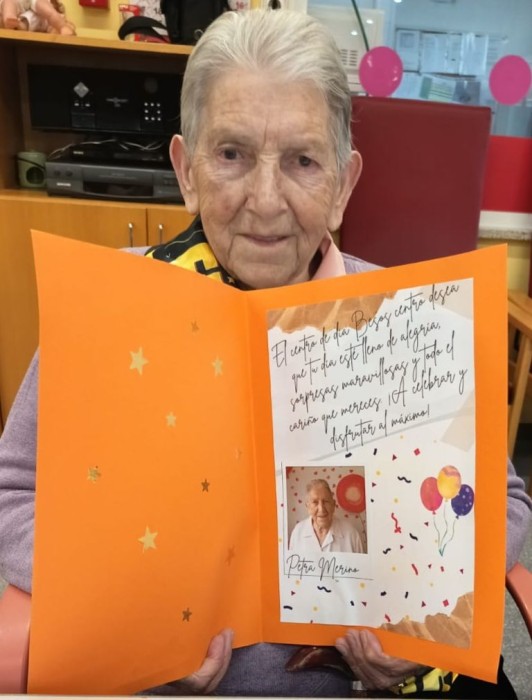 El centro de dia Besos centro desea
que tu dia este lleno de alegria,
sorpresas maravillosas y todo el
cariño que mereces ¡A celebrar y
disfrutar al máximo!
Petra Merino